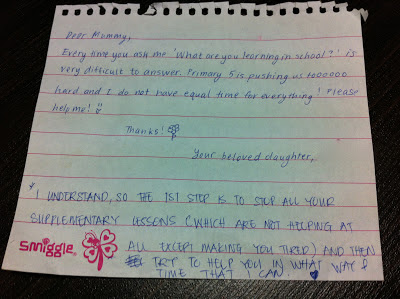 Dear Mommy,
Every time you ask me 'What are you learning in school?' is
very difficult to answer. Primary 5 is pushing us tooooooo
hard and I do not have equal time for everything! Please
help me!
Thanks!
Your beloved daughter,
I UNDERSTAND, SO THE 1ST STEP IS TO STOP ALL YOUR
SUPPLEMENTARY LESSONS (WHICH ARE NOT HELPING AT
ALL EXCEPT MAKING YOU TIRED) AND THEN
TRY TO HELP YOU IN WHAT WAY &
TIME THAT I CAN
smiggle